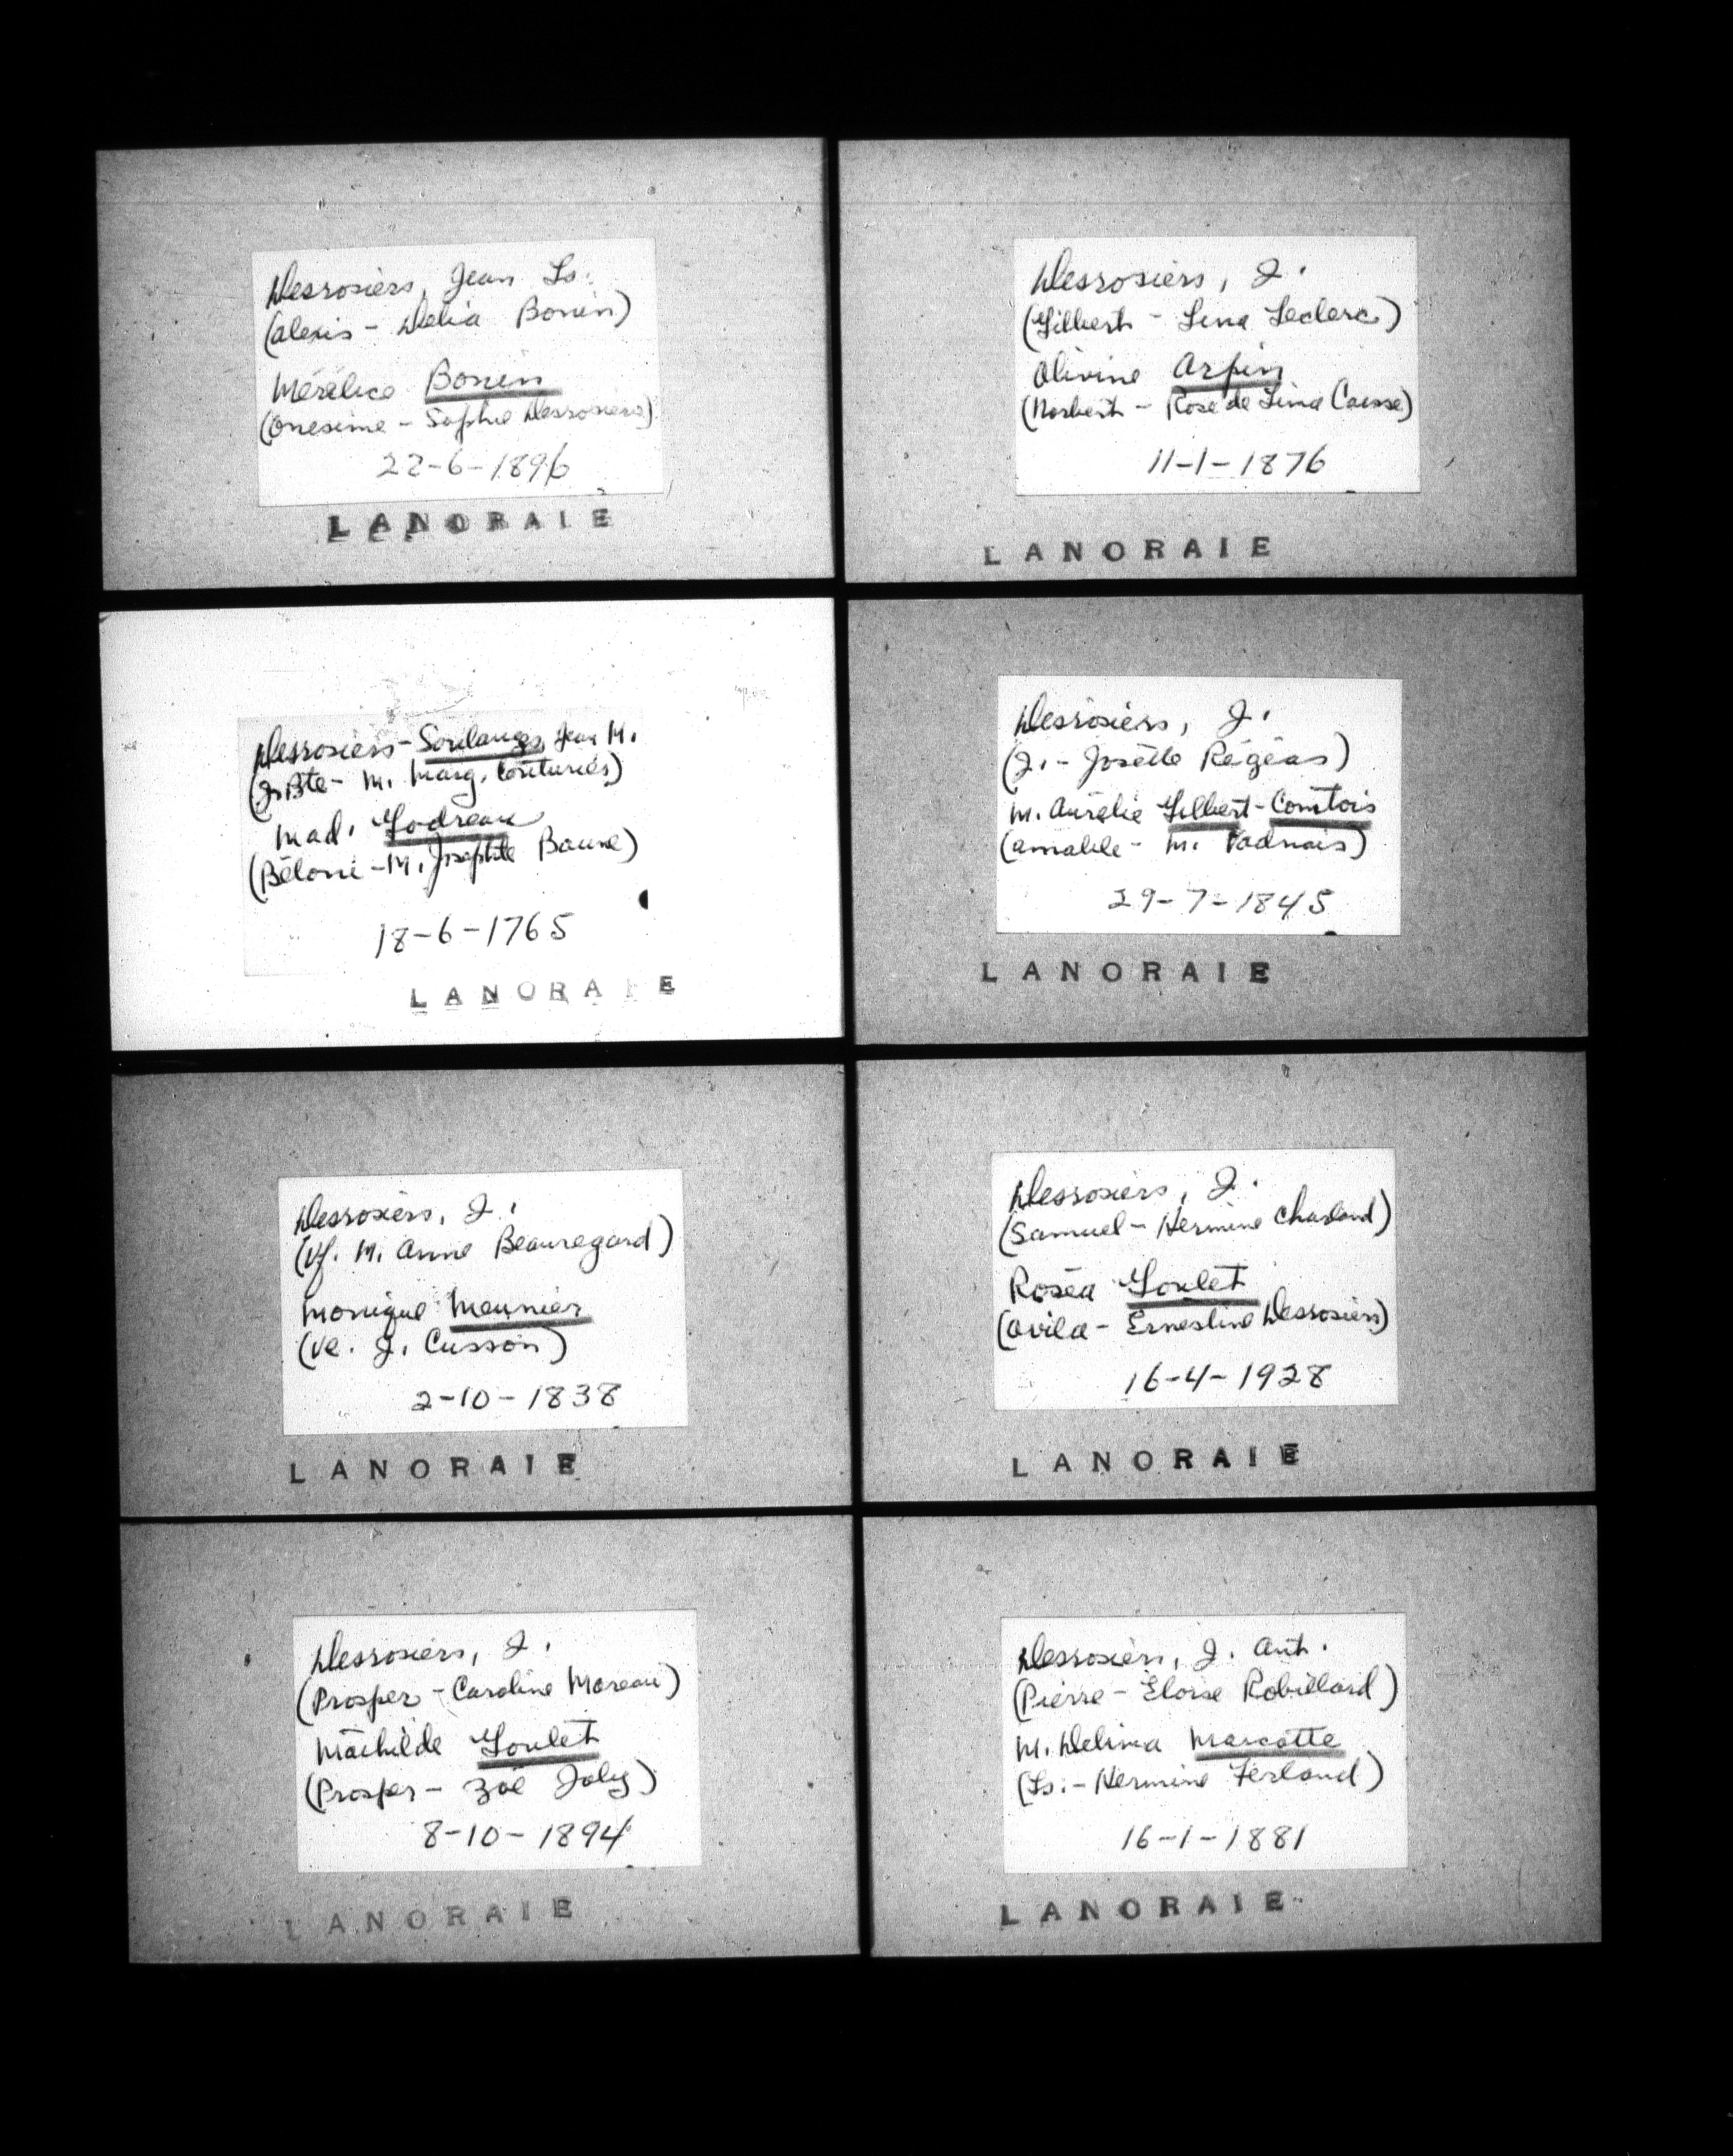 Desrosiers, Jean Ls.
(Alexis - Délia Bonin)
Mérélice Bonin
(Onesime - Sophie Desrosiers)
22-6-1896
LANORAIE
Desrosiers, J.
(Gilbert - Lina Leclerc)
Olivine Arpin
(Norbert - Rose de Lima Caisse)
11-1-1876
LANORAIE
Desrosiers-Soulange, Jean M.
(J. Bte - M. Marg. Couturier)
Mad. Godreau
(Béloni - M. Josephte Boune)
18-6-1765
LANORAIE
Desrosiers, J.
(J. - Josette Régéas)
M. Aurélie Gilbert-Comtois
(Amable - M. Vadnais)
29-7-1845
LANORAIE
Desrosiers, J.
(Vf. M. Anne Beauregard)
Monique Meunier
(Ve. J. Cusson)
2-10-1838
LANORAIE
Desrosiers, J.
(Samuel - Hermine Charland)
Roséa Goulet
(Ovila - Ernestine Desrosiers)
16-4-1928
LANORAIE
Desrosiers, J.
(Prosper - Caroline Moreau)
Mathilde Goulet
(Prosper - Zoé Joly)
8-10-1894
LANORAIE
Desrosiers, J. Ant.
(Pierre - Eloise Robillard)
M. Delima Marcotte
(Ls. - Hermine Ferland)
16-1-1881
LANORAIE